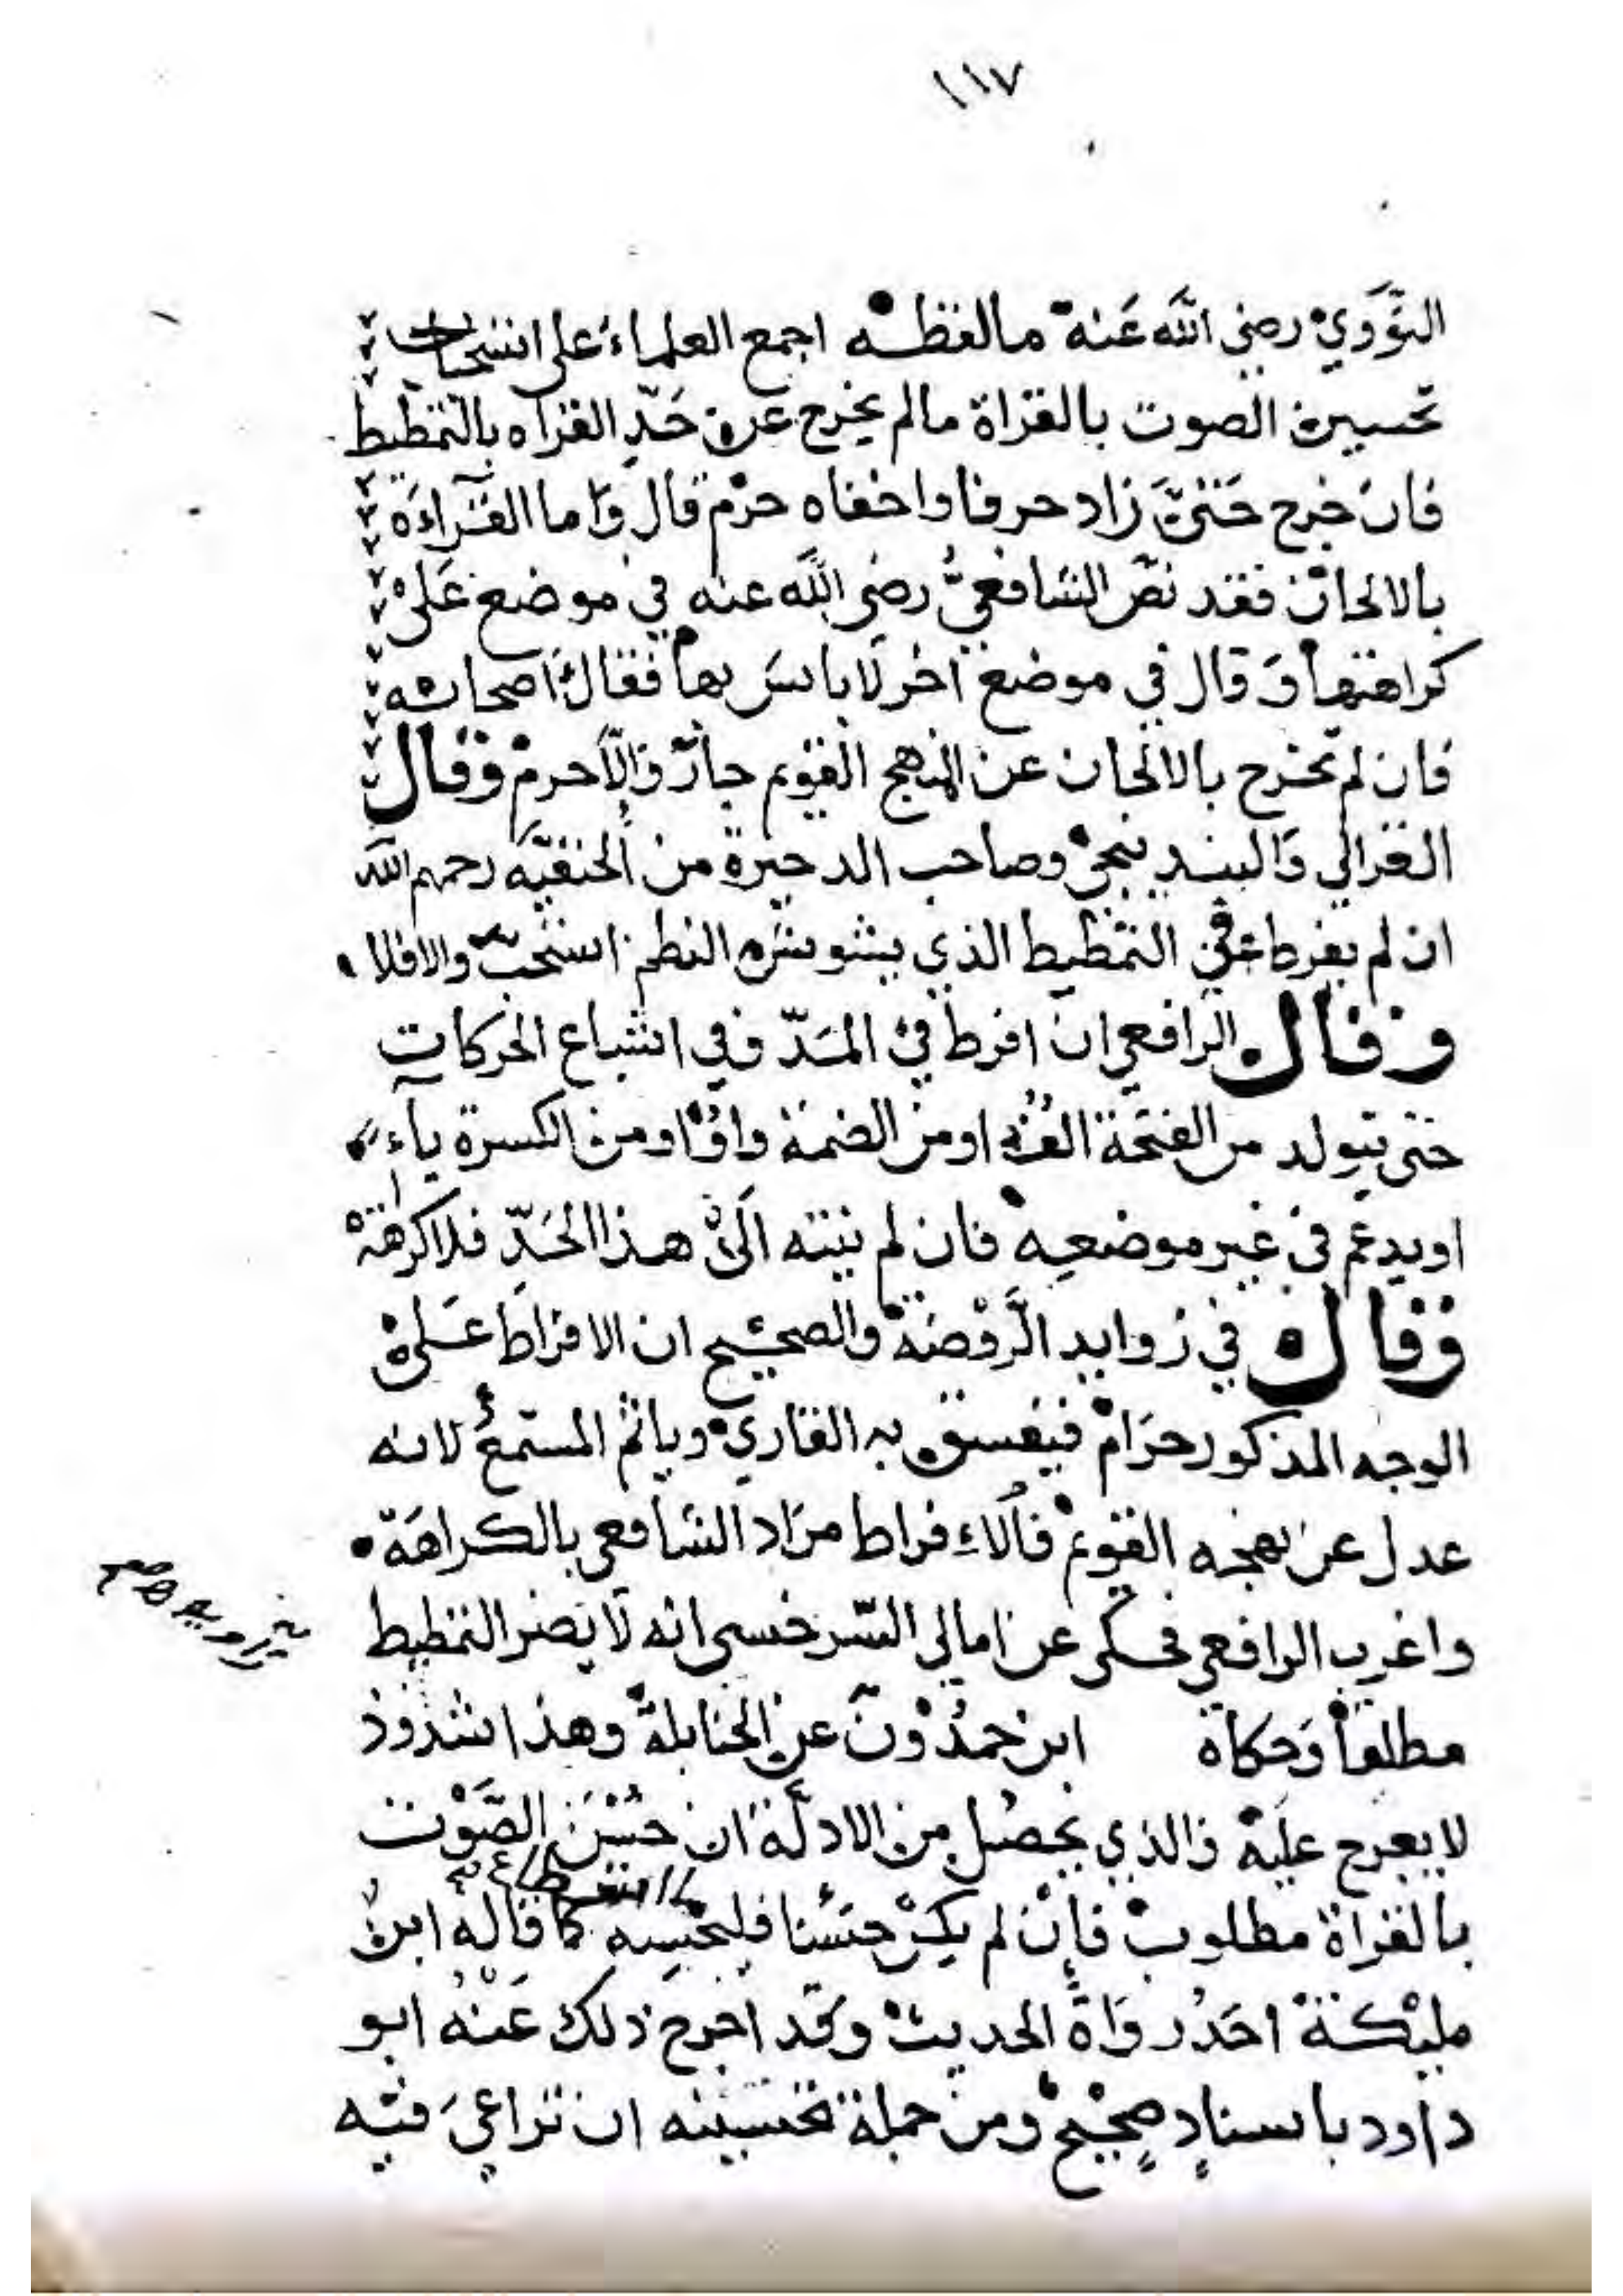 ١١٧
النَّوَوي رضي اللَّه عَنه مالفظه اجمع العلماءَ على استحباب
تحسين الصوت بالقراة مالم يخرج عن حَدِّ القراه بالتمطيط
فان خرج حَتىَّ زاد حرفا واخفاه حرم قال وَاما القرآءَه
بالالحان فقد نصّ الشافعيُّ رضي اللَّه عنه في موضع عَلى
كراهتها وَقال في موضع آخر لاباسَ بها فقالَ اصحابه
فان لم تخرج بالالحان عن المنهج القويم جازَ وَالَّا حرم وقال
الغزالي وَالبندنيجي وصاحب الدخيرة من الحنفيَّه رحمهم اللَّه
ان لم يفرط في التمطيط الذي يشوش النظم استحب والافلا
وقال الرافعي ان افرط في المَدّ وفي اشباع الحركات
حتى يتولد من الفتحة الف او من الضمة واوٌ او من الكسرة يآء
او يدغم في غير موضعه فان لم ينته الَى هذا الحَدِّ فلا كرهة
وقال في زوايد الرَّوْضة والصحيح ان الافراطَ عَلى
الوجه المذكور حرَام فيفسق به القاري وياثم المستمع لانه
عدل عن نهجه القويم فالاءفراط مرَاد الشافعي بالكراهَة
واغرب الرافعي فحكى عن امالي السّرخسي انه لا يضر التمطيط
مطلقاً وَحكاه ابن حمدُوْن عن الحنابلة وهذا شذوذ
لا يعرج عليه فالذي يحصُل من الادلَّة ان حُسْنَ الصَّوْت
بالقراة مطلوب فإن لم يكن حسَنا فليحسنه كما قاله ابن
مليْكة احَدُ روَاةِ الحديث وَقد اخرج ذلك عَنْه ابو
داود باسنادٍ صحيْحٍ ومن جملة تحسينه ان تراعيَ فيه